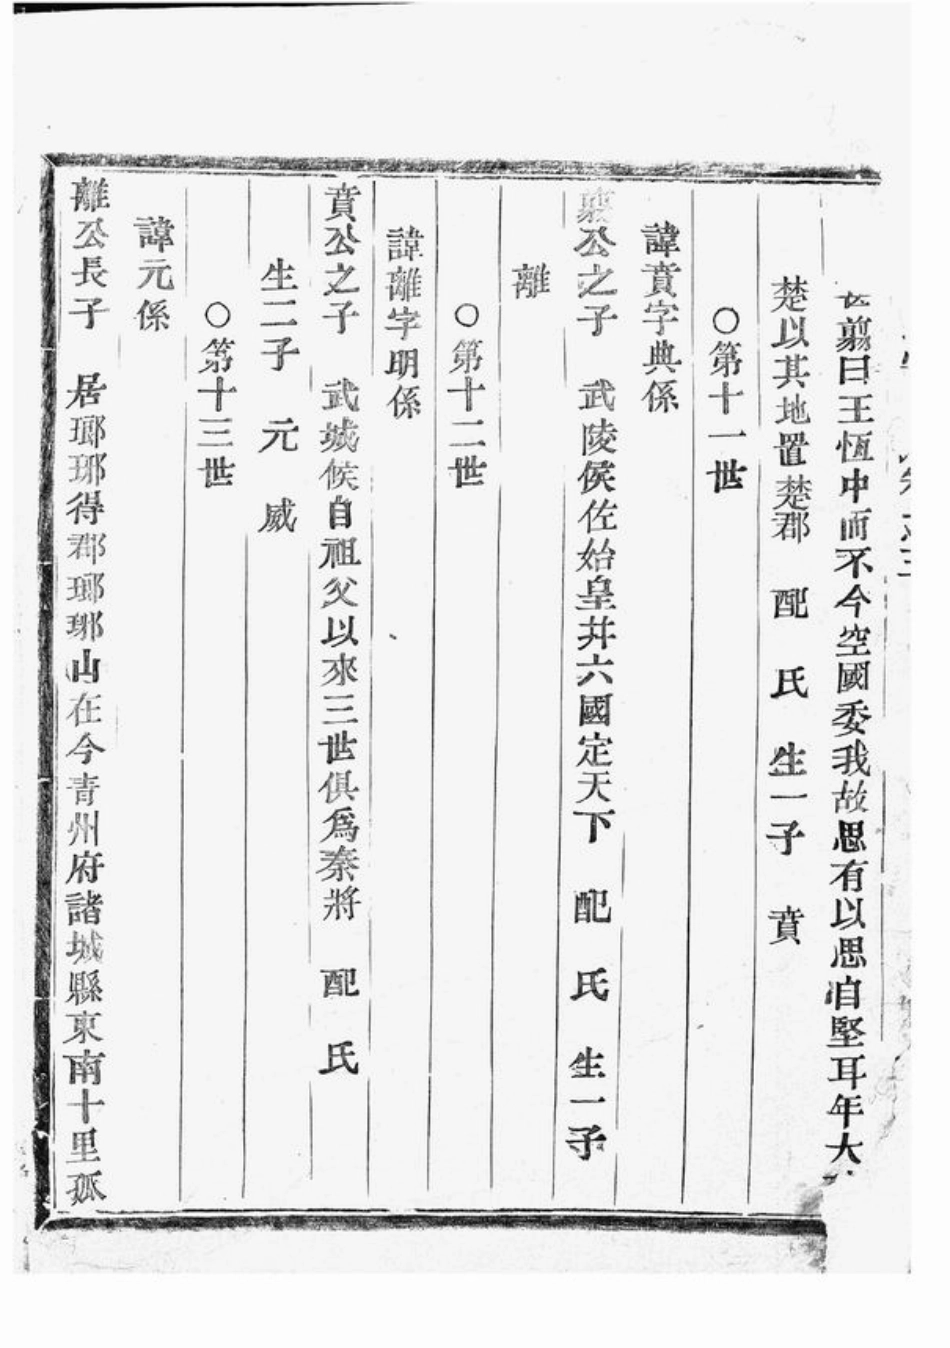 翦曰王恆中而不今空國委我故思有以思自堅耳年大
楚以其地置楚郡 配 氏 生一子 賁
○第十一世
諱賁字典係
翦公之子 武陵侯佐始皇并六國定天下 配 氏 生一子
離
○第十二世
諱離字明係
賁公之子 武城候自祖父以來三世俱為秦將 配 氏
生二子 元 威
○第十三世
諱元係
離公長子 居瑯琊得郡瑯琊山在今青州府諸城縣東南十里孤